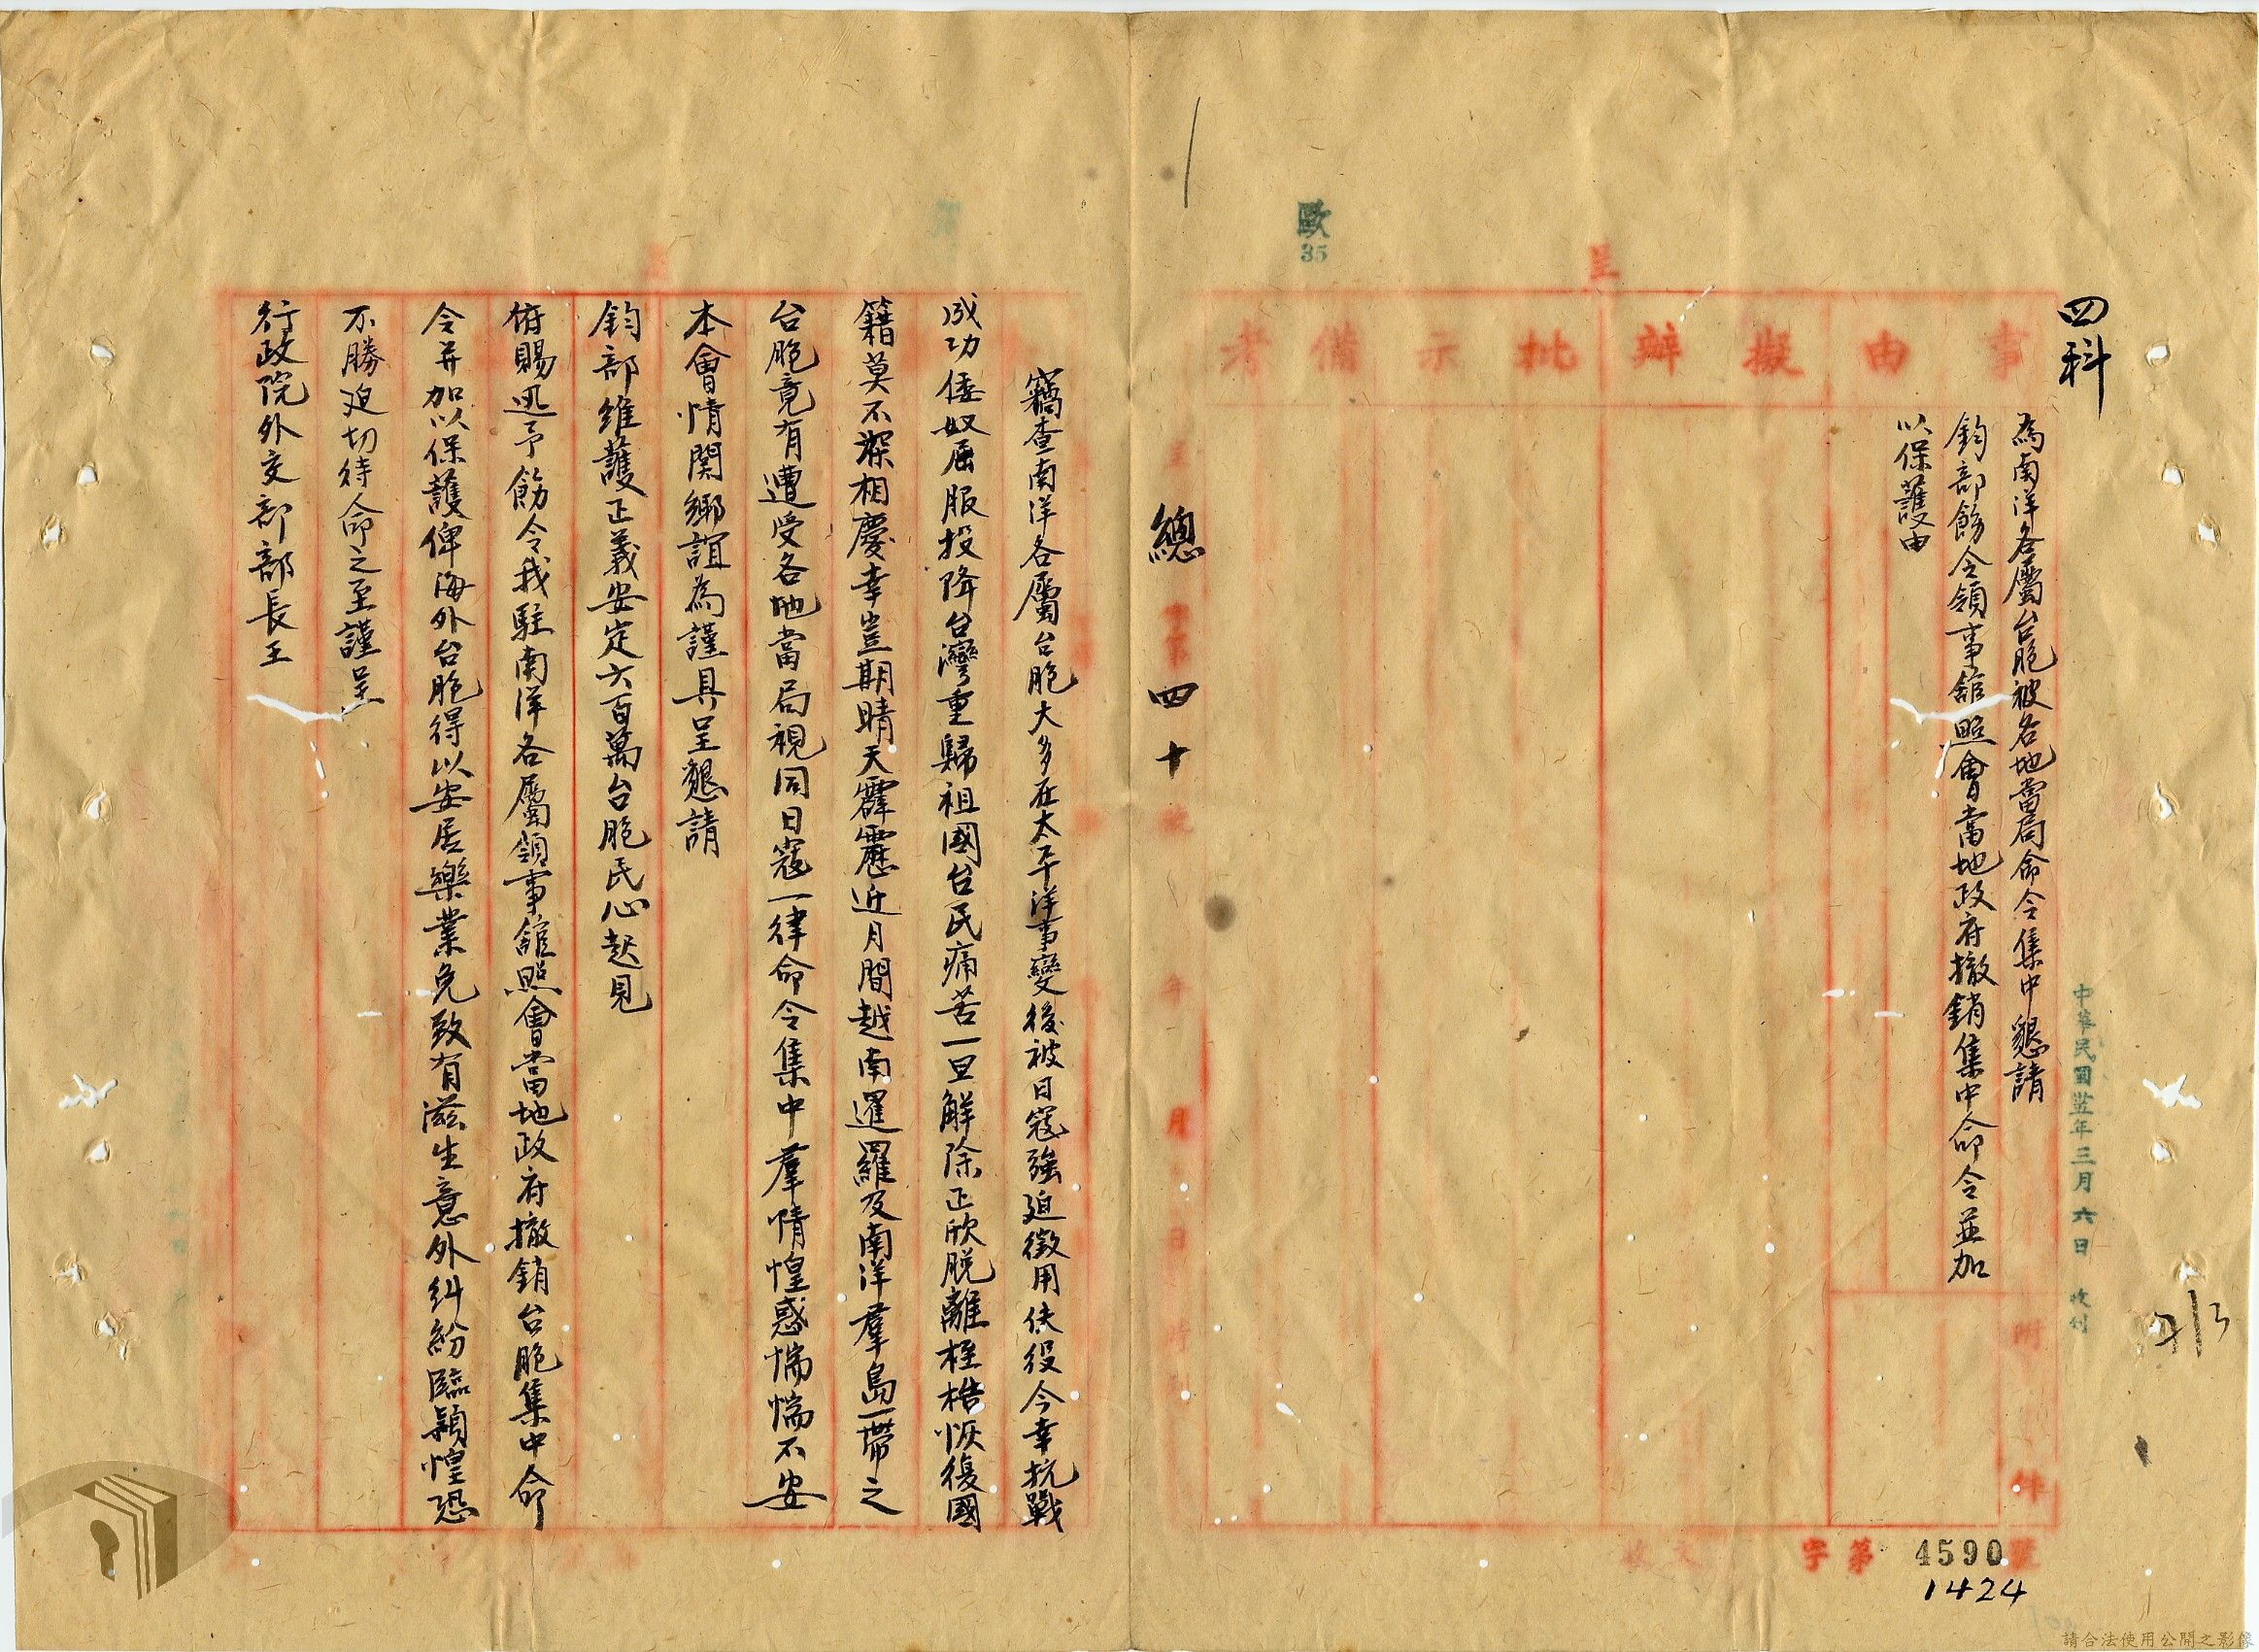 四科
事由
擬辦
批示
備考
為南洋各屬台胞被各地當局命令集中懇請
鈞部飭令領事舘照會當地政府撤銷集中命令並加
以保護由
附件
中華民國卅五年三月六日 收付
收文
字第4590號
1424
呈
歐
35
總字第四十號
年 月 日 時
竊查南洋各屬台胞大多在太平洋事變後被日寇強迫徵用伕役今幸抗戰
成功倭奴屈服投降台灣重歸祖國台民痛苦一旦解除正欣脱離桎梏恢復國
籍莫不深相慶幸豈期晴天霹靂近月間越南暹羅及南洋羣島一帶之
台胞竟有遭受各地當局視同日寇一律命令集中羣情惶惑惴惴不安
本會情関鄉誼為謹具呈懇請
鈞部維護正義安定六百萬台胞民心起見
俯賜迅予飭令我駐南洋各屬領事舘照會當地政府撤銷台胞集中命
令并加以保護俾海外台胞得以安居樂業免致有滋生意外糾紛臨穎惶恐
不勝迫切待命之至謹呈
行政院外交部部長王
請合法使用公開之影像